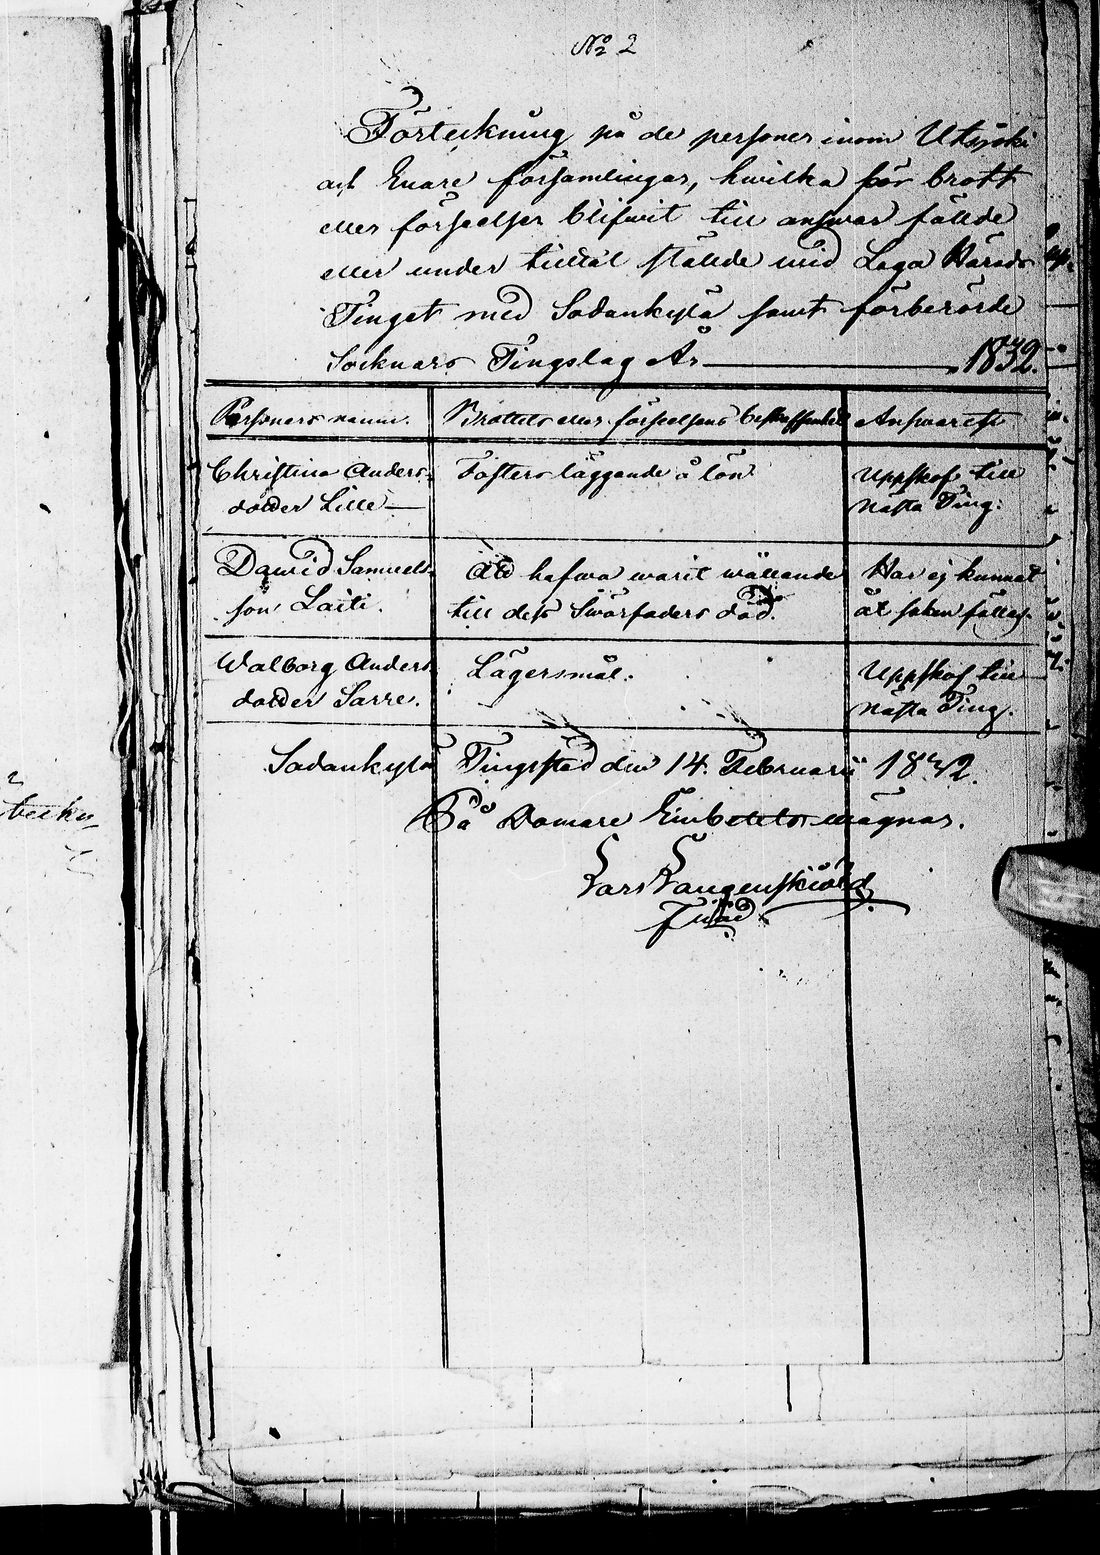 No 2
Förteckning på de personer inom Utsjoki
och Enare församlingar, hwilka för brott
eller förseelser blifwit till answar fällde
eller under tilltal ställde wid Laga Härads
Tinget med Sodankylä samt förberörde
Socknars Tingslag År 1832.
Personers namn. Brottets eller förseelsens beskaffenhet Answaret
Christina Anders- Fosters läggande å lön Uppskof till
dotter Lille nästa Ting.
Dawid Samuels- Att hafwa warit wållande Har ej kunnat
son Laiti. till dess Swärfaders död. åt saken fällas.
Walborg Anders Lägersmål. Uppskof till
dotter Sarre. nästa Ting.
Sodankylä Tingstad den 14. Februarii 1832.
På Domare Embetets wägnar.
Lars Langenskiöld